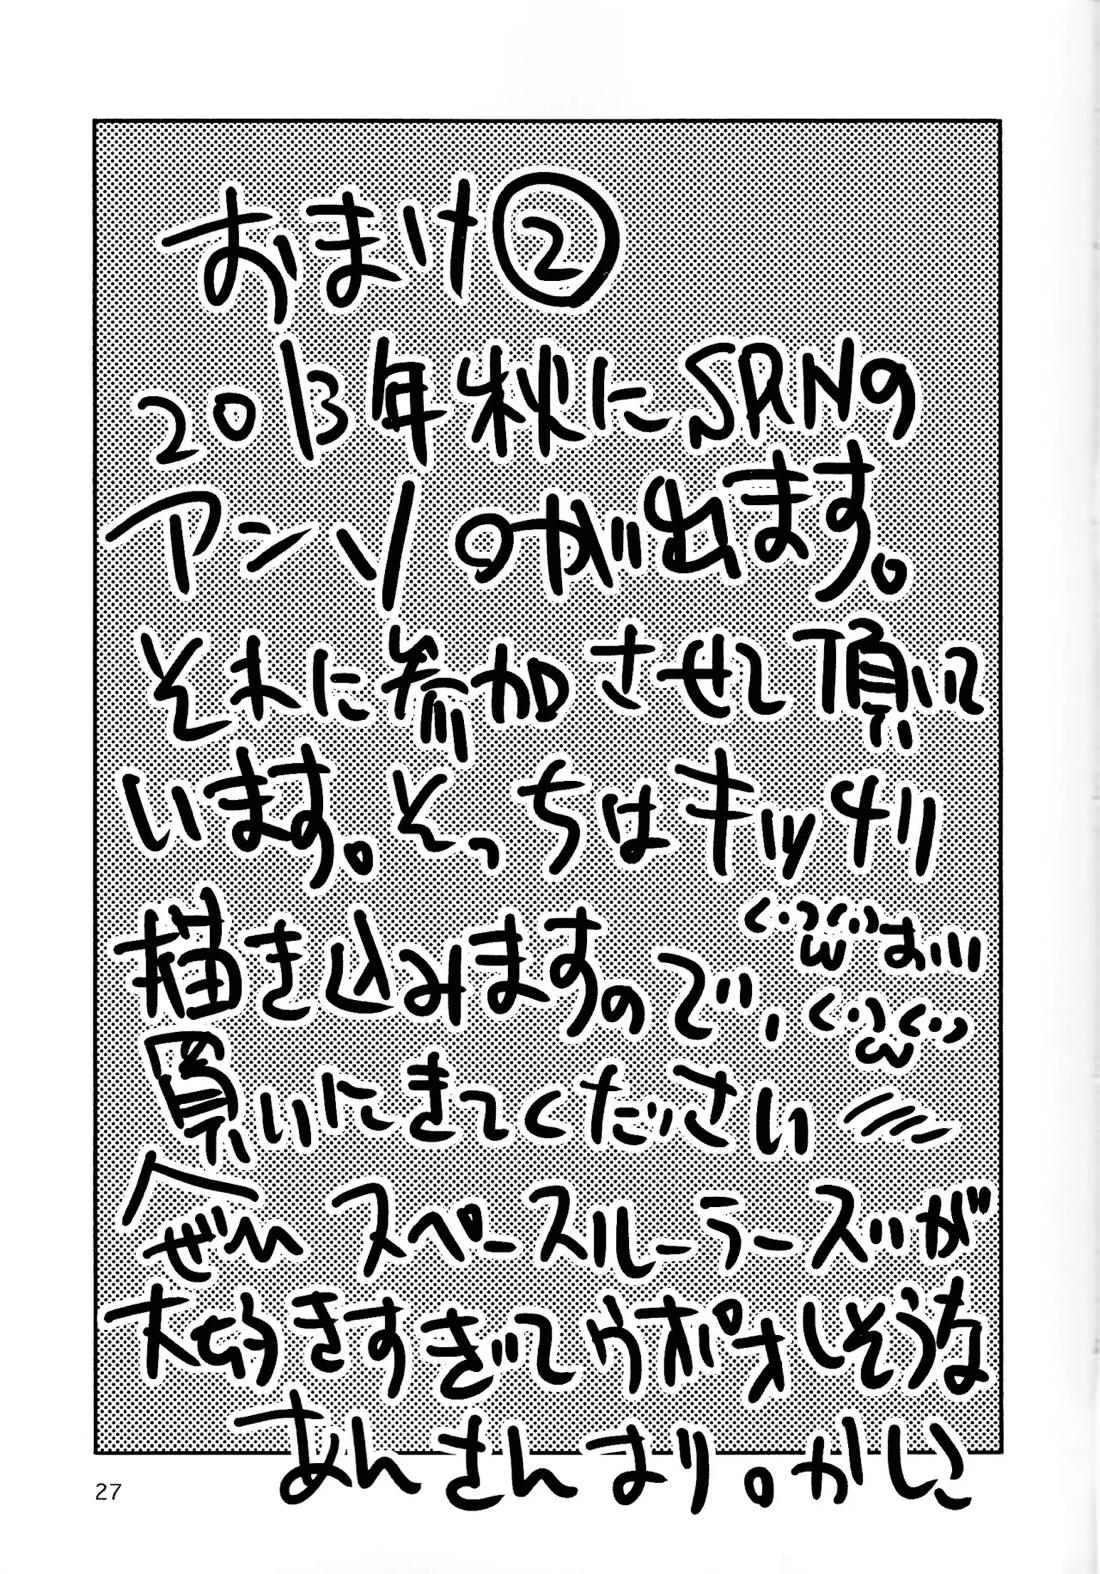 おまけ②
2013年秋にSRNの
アンソのが出ます。
それに参加させて頂いて
います。そっちはキッチリ
描き込みますので、
おいい
買いにきてくださいぜひ
スペースルーラーズが
大好きすぎてウポオしそうな
あんさんより。かしこ
27